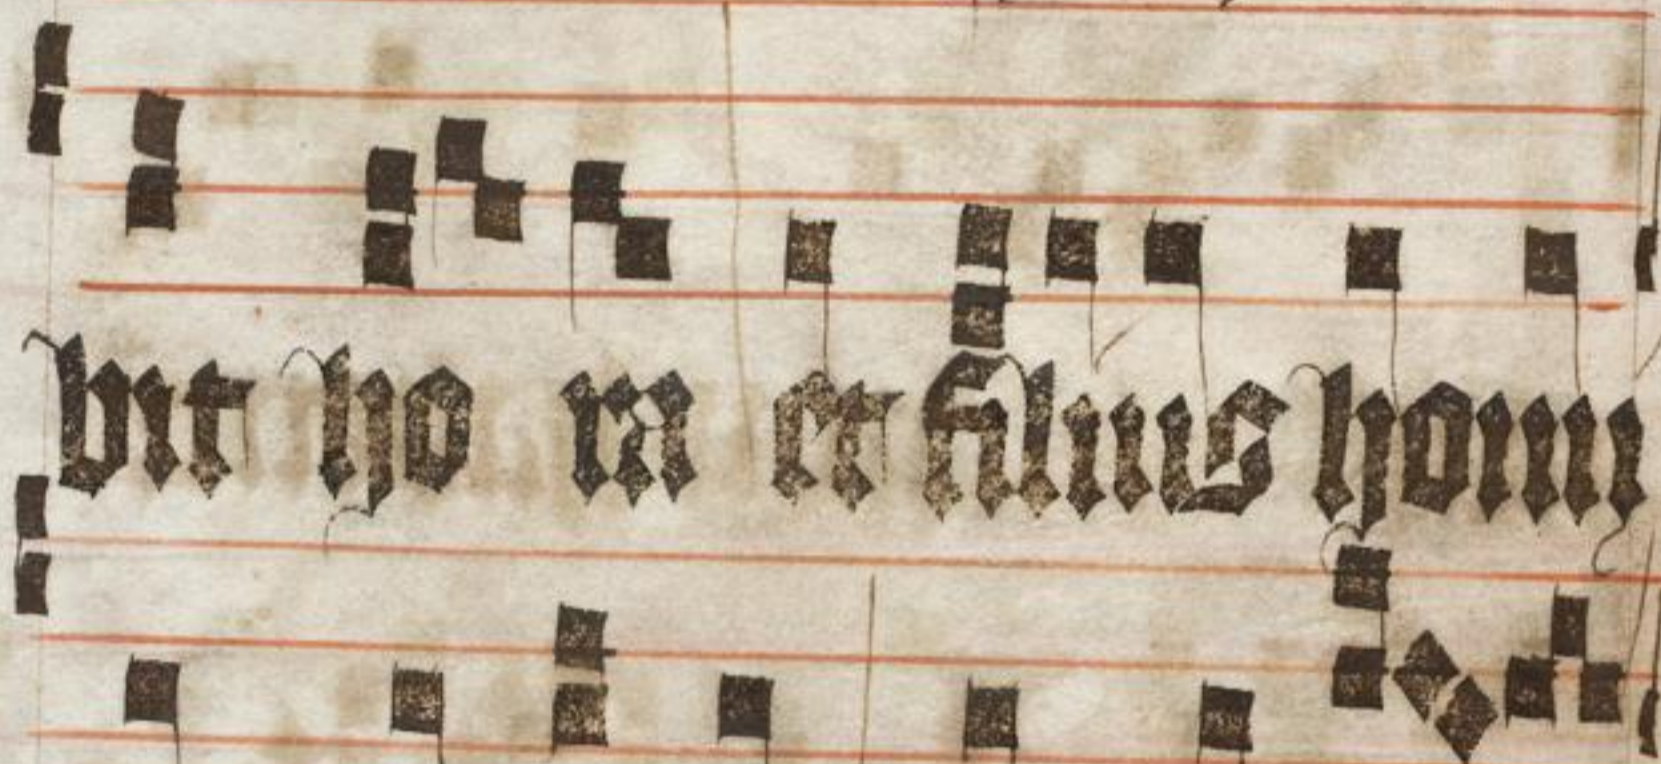 bit ho ra et filius homi